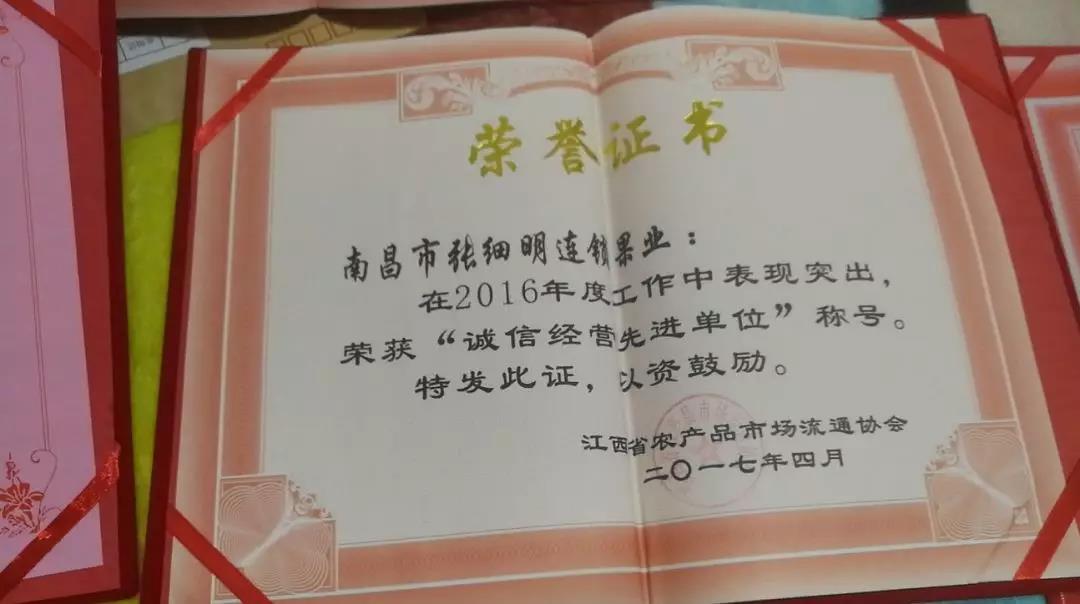 荣誉证书
南昌市张细明连锁果业：
在2016年度工作中表现突出，
荣获“诚信经营先进单位”称号。
特发此证，以资鼓励。
江西省农产品市场流通协会
二〇一七年四月